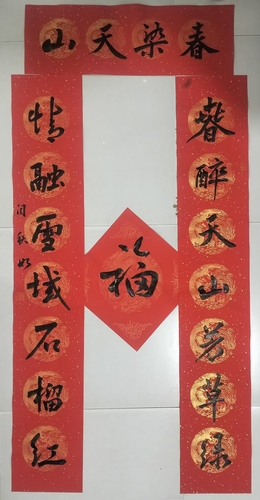 春染天山
春醉天山芳草绿
情融雪域石榴红
福